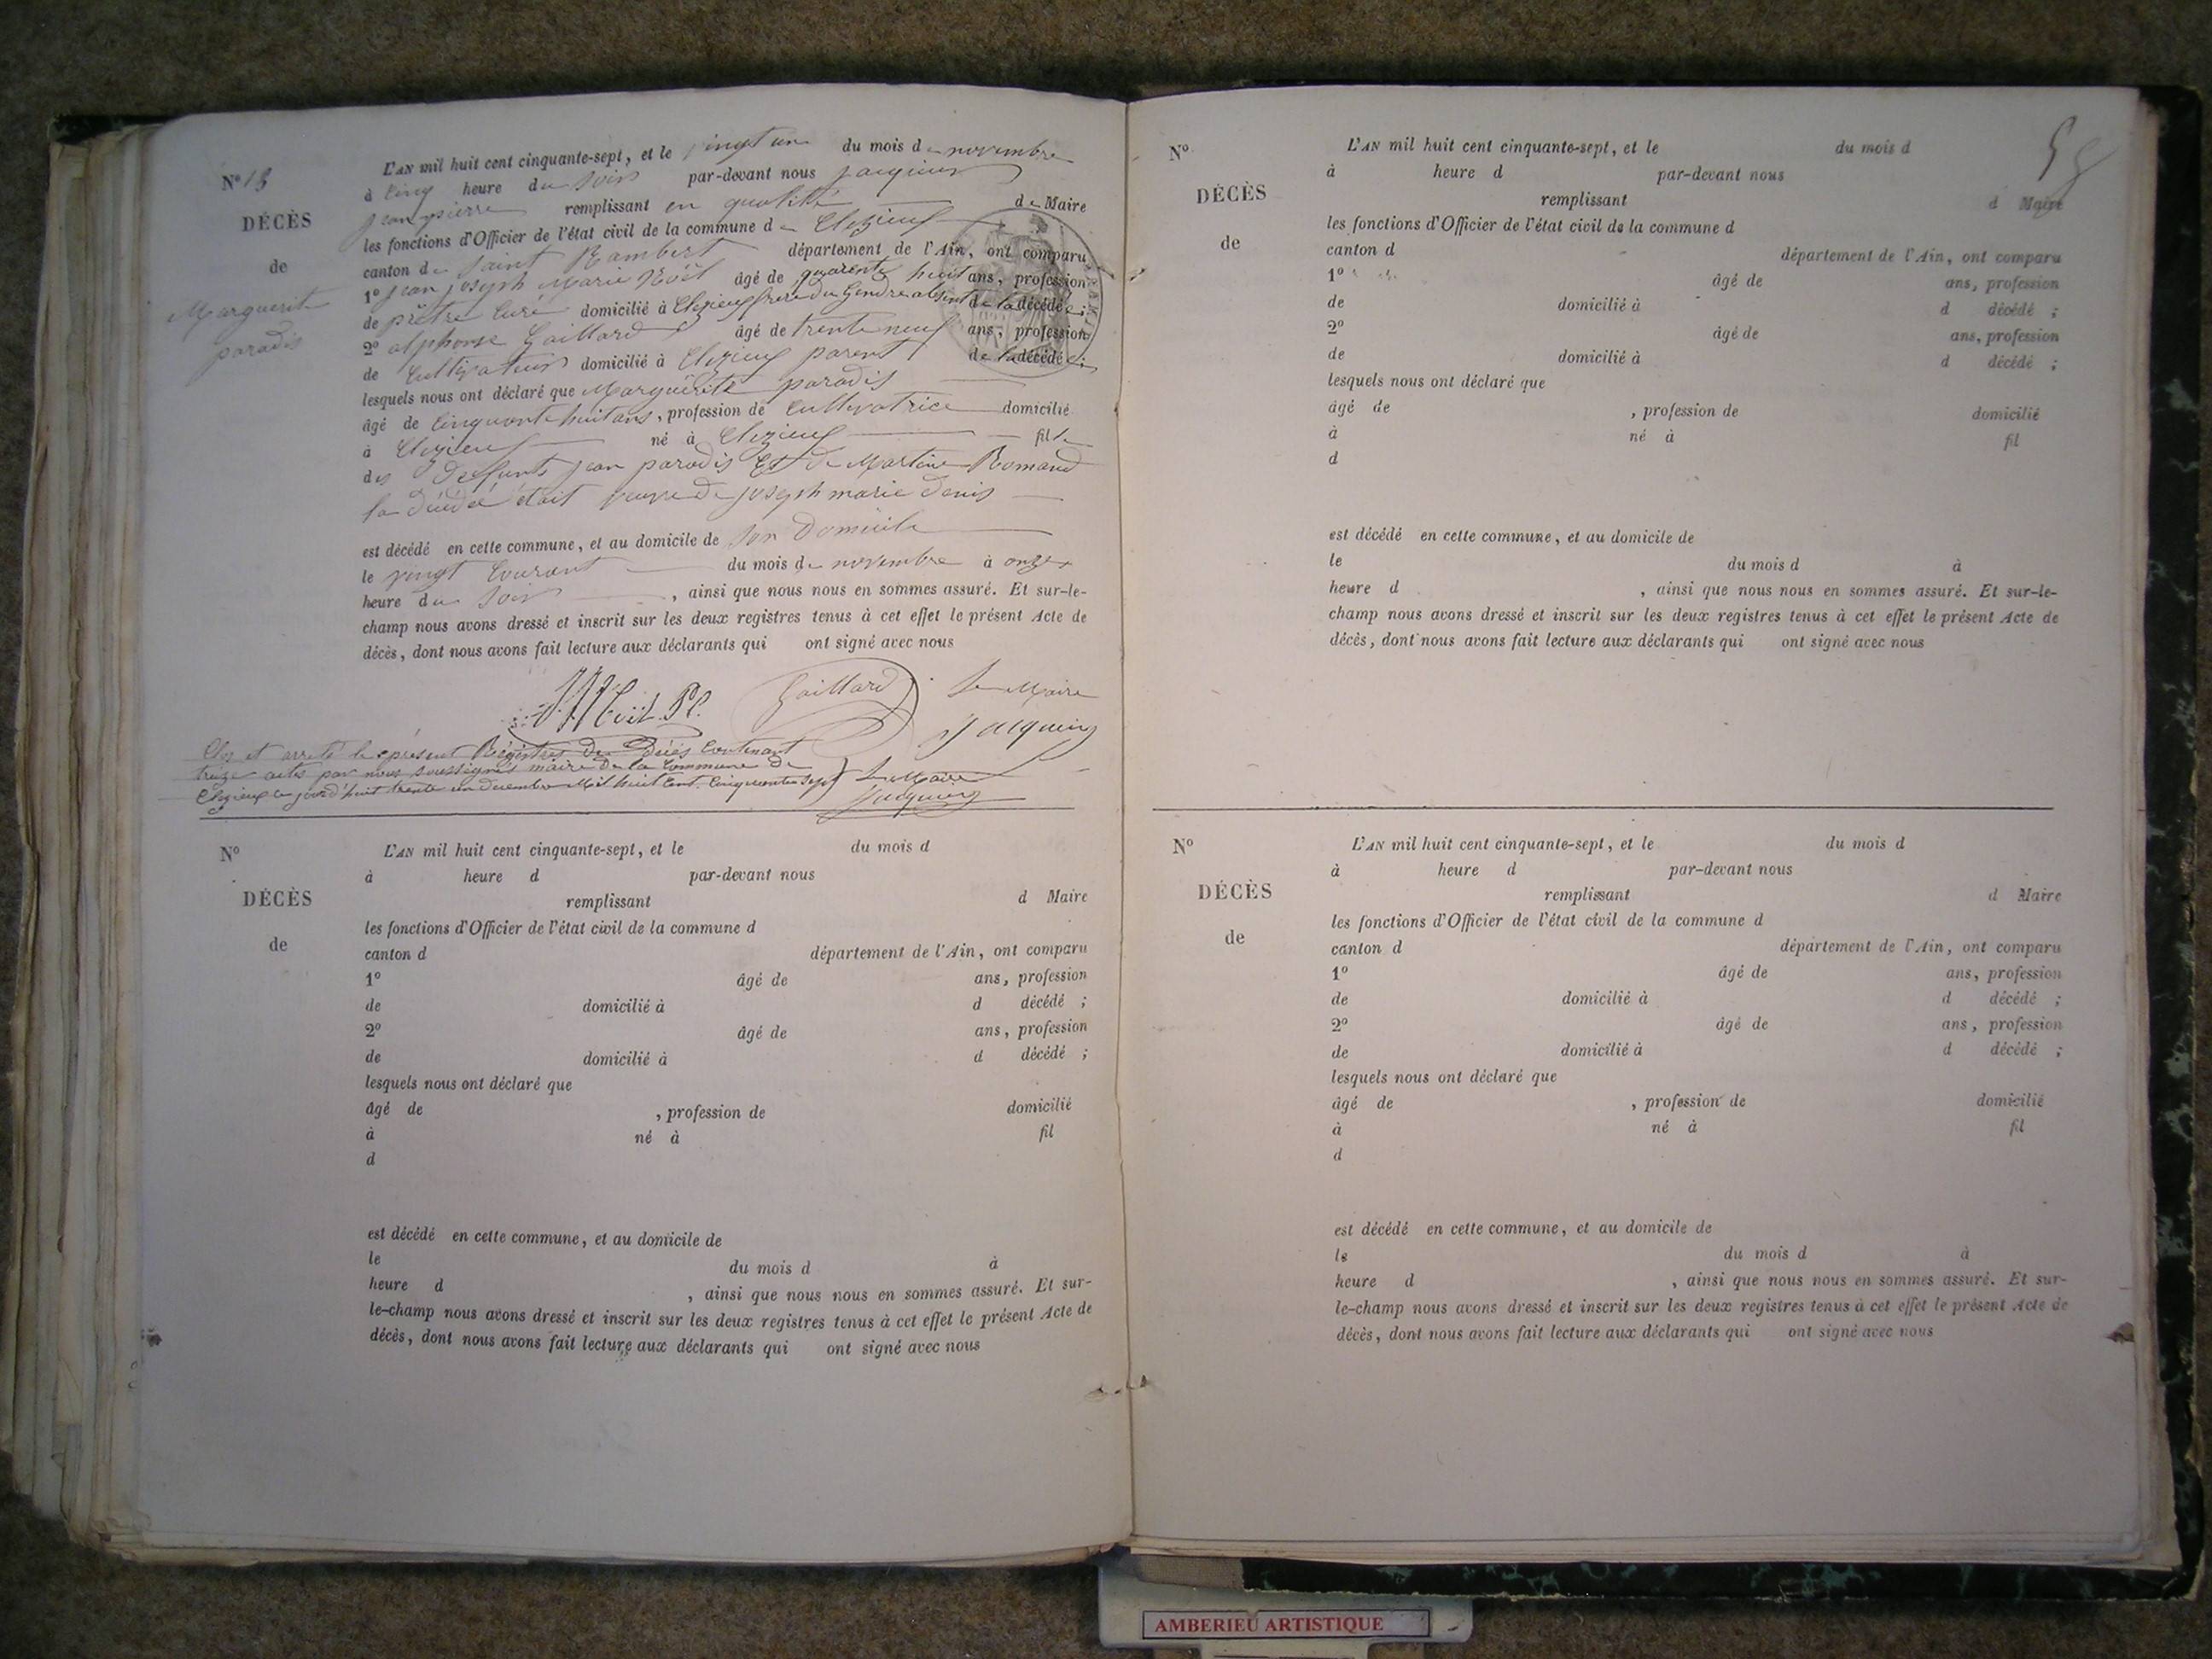 N° 13
DÉCÈS
de
Marguerite
paradis
L'AN mil huit cent cinquante-sept, et le vingt un du mois de novembre
à cinq heure du soir par-devant nous jacquin
jean pierre remplissant en qualité de Maire
les fonctions d'Officier de l'état civil de la commune de Cleyzieu
canton de saint Rambert département de l'Ain, ont comparu
1° jean joseph Marie Noël âgé de quarante huit ans, profession
de prêtre curé domicilié à Cleyzieu frère du Gendre absent de la décédée;
2° alphonse Gaillard âgé de trente neuf ans, profession
de Cultivateur domicilié à Cleyzieu parent de la décédée;
lesquels nous ont déclaré que Marguerite paradis
âgé de cinquante huit ans, profession de Cultivatrice domicilié
à Cleyzieu né à Cleyzieu fille
des défunts jean paradis Et de Martine Romand
la décédée était veuve de joseph marie denis
est décédé en cette commune, et au domicile de son Domicile
le vingt Courant du mois de novembre à onze
heure du soir, ainsi que nous nous en sommes assuré. Et sur-le-
champ nous avons dressé et inscrit sur les deux registres tenus à cet effet le présent Acte de
décès, dont nous avons fait lecture aux déclarants qui ont signé avec nous
Gaillard Le Maire
Jacquin
Clos et arrêté le présent Régistres des décès Contenant
treize actes par nous soussignés maire de la Commune de
Cleyzieu ce jourd'huit trente un decembre Mil huit Cent Cinquante sept Le Maire
Jacquin
N°
DÉCÈS
de
L'AN mil huit cent cinquante-sept, et le du mois d
à heure d par-devant nous
remplissant d Maire
les fonctions d'Officier de l'état civil de la commune d
canton d département de l'Ain, ont comparu
1° âgé de ans, profession
de domicilié à d décédé ;
2° âgé de ans, profession
de domicilié à d décédé ;
lesquels nous ont déclaré que
âgé de , profession de domicilié
à né à fil
d
est décédé en cette commune, et au domicile de
le du mois d à
heure d , ainsi que nous nous en sommes assuré. Et sur-
le-champ nous avons dressé et inscrit sur les deux registres tenus à cet effet le présent Acte de
décès, dont nous avons fait lecture aux déclarants qui ont signé avec nous
N°
DÉCÈS
de
L'AN mil huit cent cinquante-sept, et le du mois d
à heure d par-devant nous
remplissant d Maire
les fonctions d'Officier de l'état civil de la commune d
canton d département de l'Ain, ont comparu
1° âgé de ans, profession
de domicilié à d décédé ;
2° âgé de ans, profession
de domicilié à d décédé ;
lesquels nous ont déclaré que
âgé de , profession de domicilié
à né à fil
d
est décédé en cette commune, et au domicile de
le du mois d à
heure d , ainsi que nous nous en sommes assuré. Et sur-le-
champ nous avons dressé et inscrit sur les deux registres tenus à cet effet le présent Acte de
décès, dont nous avons fait lecture aux déclarants qui ont signé avec nous
N°
DÉCÈS
de
L'AN mil huit cent cinquante-sept, et le du mois d
à heure d par-devant nous
remplissant d Maire
les fonctions d'Officier de l'état civil de la commune d
canton d département de l'Ain, ont comparu
1° âgé de ans, profession
de domicilié à d décédé ;
2° âgé de ans, profession
de domicilié à d décédé ;
lesquels nous ont déclaré que
âgé de , profession de domicilié
à né à fil
d
est décédé en cette commune, et au domicile de
le du mois d à
heure d , ainsi que nous nous en sommes assuré. Et sur-
le-champ nous avons dressé et inscrit sur les deux registres tenus à cet effet le présent Acte de
décès, dont nous avons fait lecture aux déclarants qui ont signé avec nous
AMBERIEU ARTISTIQUE